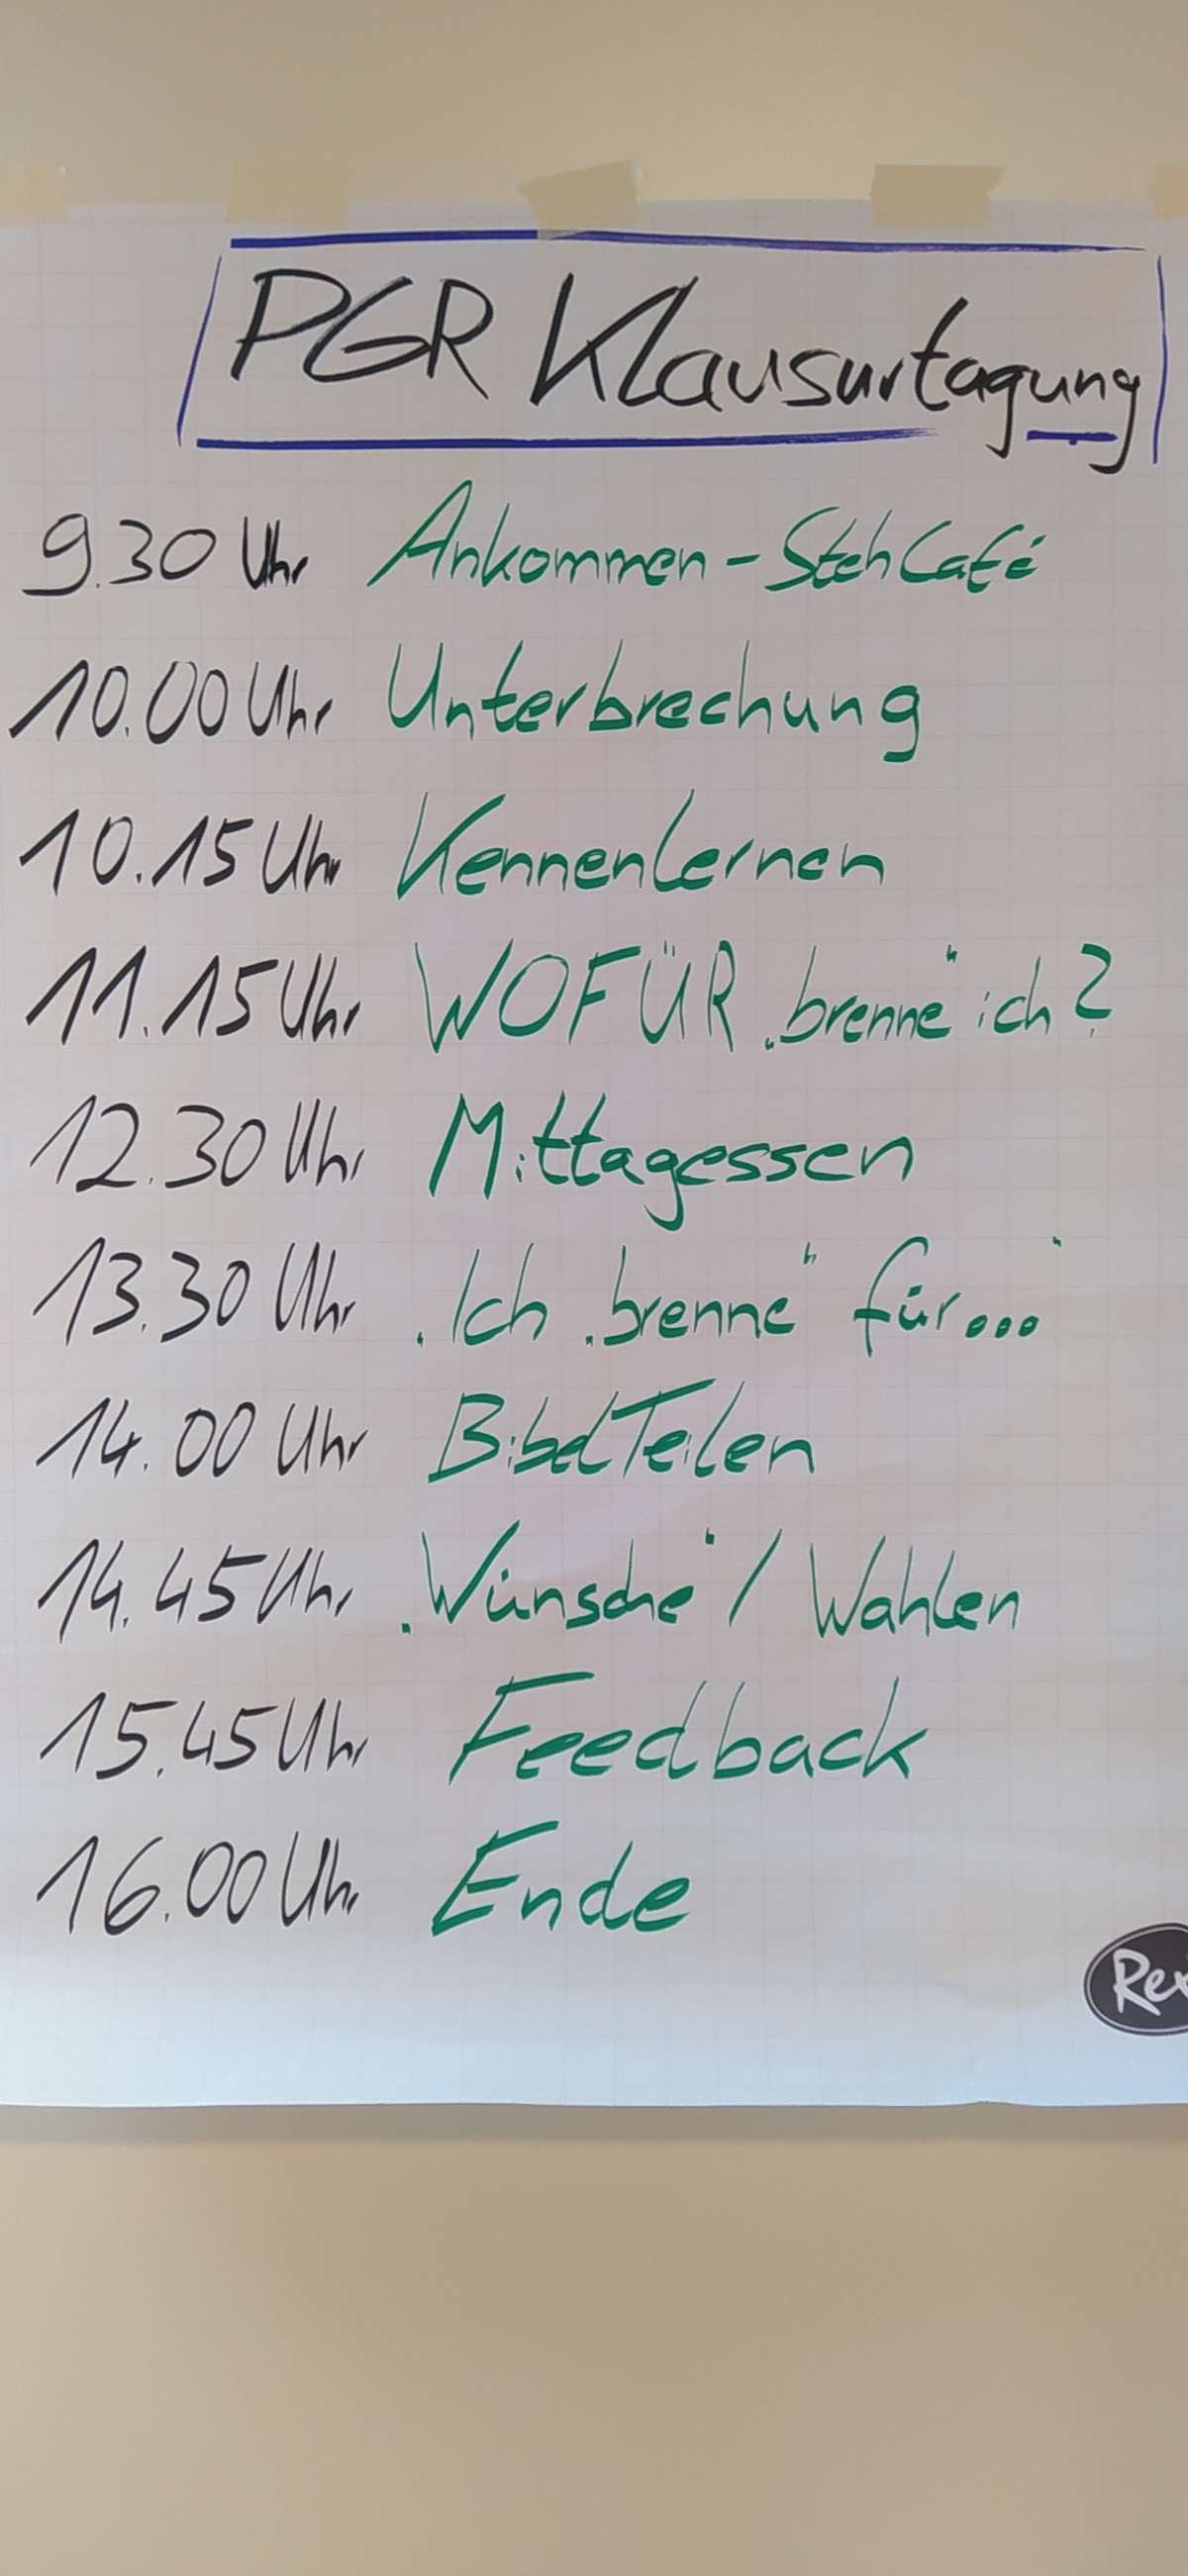 PGR Klausurtagung
9.30 Uhr Ankommen - StehCafé
10.00 Uhr Unterbrechung
10.15 Uhr Kennenlernen
11.15 Uhr WOFÜR „brenne“ ich?
12.30 Uhr Mittagessen
13.30 Uhr „Ich „brenne“ für..."
14.00 Uhr BibelTeilen
14.45 Uhr „Wünsche“ / Wahlen
15.45 Uhr Feedback
16.00 Uhr Ende